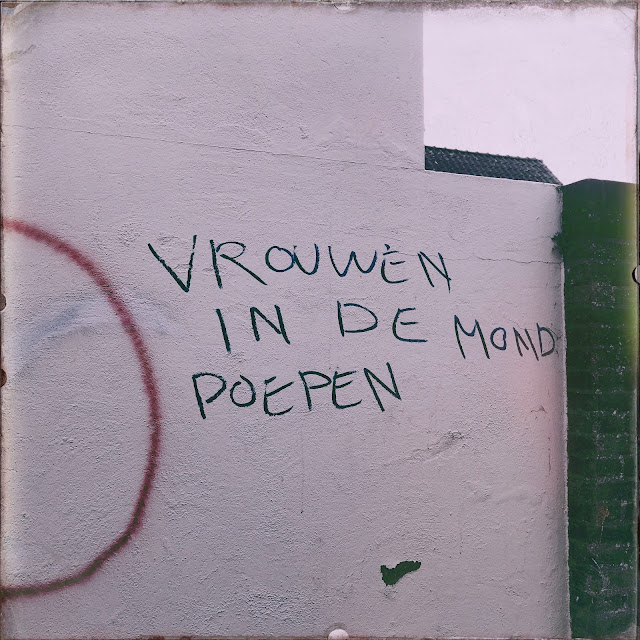 VROUWEN
IN DE MOND
POEPEN